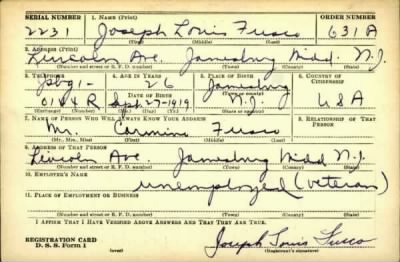 SERIAL NUMBER 1. NAME (Print) ORDER NUMBER
2231 Joseph Louis Fusco 631A
(First) (Middle) (Last)
2. ADDRESS (Print)
Lincoln Ave. Jamesburg Midd N.J.
(Number and street or R. F. D. number) (Town) (County) (State)
3. TELEPHONE 4. AGE IN YEARS 5. PLACE OF BIRTH 6. COUNTRY OF CITIZENSHIP
Jbg 1- 26 Jamesburg
DATE OF BIRTH (Town or county)
0144R Sept-27-1919 N.J. USA
(Exchange) (Number) (Mo.) (Day) (Yr.) (State or country)
7. NAME OF PERSON WHO WILL ALWAYS KNOW YOUR ADDRESS 8. RELATIONSHIP OF THAT PERSON
Mr. Carmine Fusco
(Mr., Mrs., Miss) (First) (Middle) (Last)
9. ADDRESS OF THAT PERSON
Lincoln Ave. Jamesburg Midd N.J.
(Number and street or R. F. D. number) (Town) (County) (State)
10. EMPLOYER'S NAME
unemployed (veteran)
11. PLACE OF EMPLOYMENT OR BUSINESS
(Number and street or R. F. D. number) (Town) (County) (State)
I AFFIRM THAT I HAVE VERIFIED ABOVE ANSWERS AND THAT THEY ARE TRUE.
REGISTRATION CARD
D. S. S. Form 1 (over) Joseph Louis Fusco
(Registrant's signature)